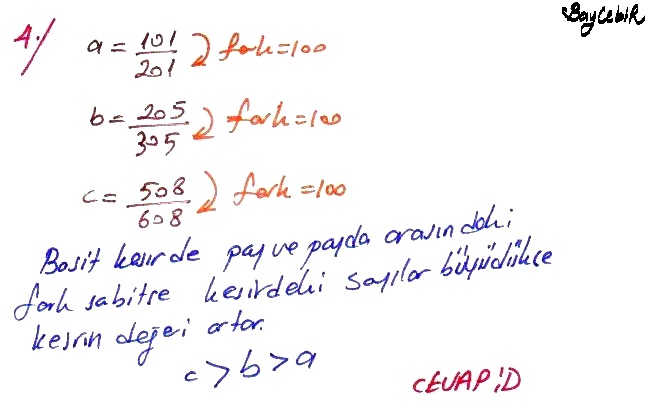 BayCebir
4.) a = 101/201 fark=100
b = 205/305 fark=100
c = 508/608 fark=100
Basit kesirde pay ve payda arasındaki
fark sabitse kesirdeki sayılar büyüdükçe
kesrin değeri artar.
c > b > a
CEVAP: D